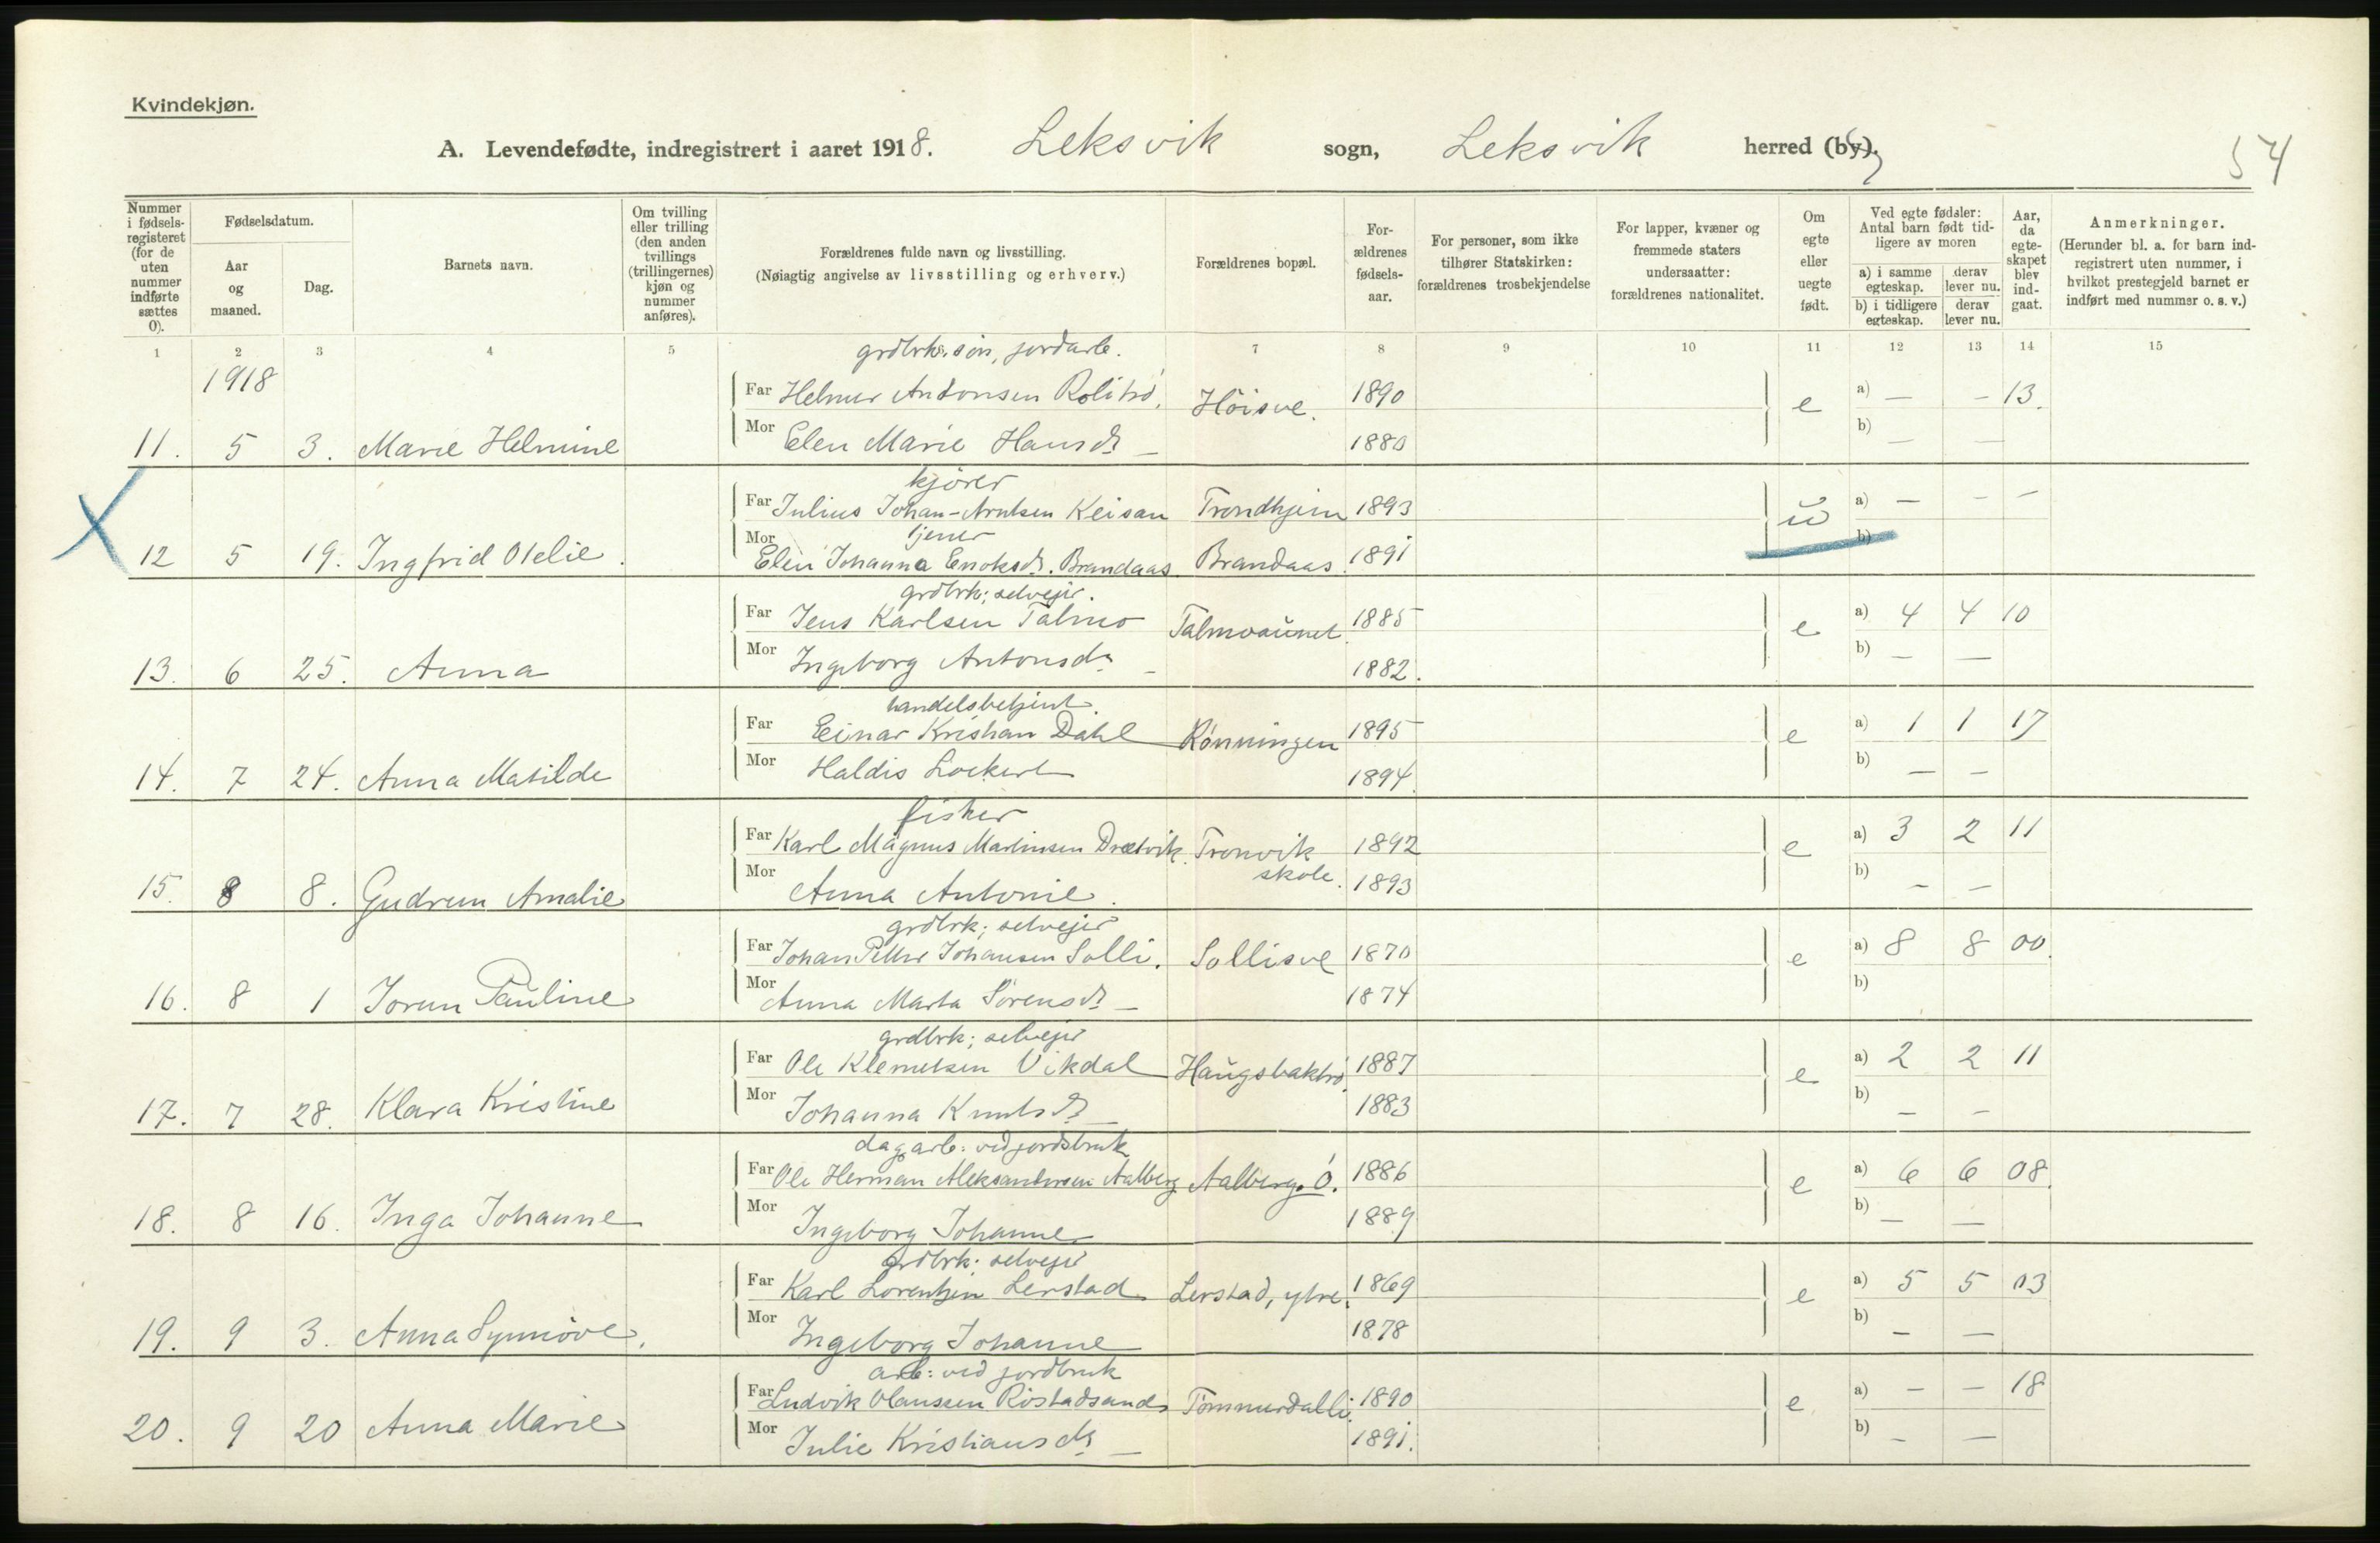 Kvindekjøn.
A. Levendefødte, indregistrert i aaret 1918. Leksvik sogn, Leksvik herred (by).
54
Nummer i fødselsregisteret (for de uten nummer indførte sættes 0).
Fødselsdatum.
Aar og maaned.
Dag.
Barnets navn.
Om tvilling eller trilling (den anden tvillings (trillingernes) kjøn og nummer anføres).
Forældrenes fulde navn og livsstilling.
(Nøiagtig angivelse av livsstilling og erhverv.)
Forældrenes bopæl.
Forældrenes fødselsaar.
For personer, som ikke tilhører Statskirken: forældrenes trosbekjendelse
For lapper, kvæner og fremmede staters undersaatter: forældrenes nationalitet.
Om egte eller uegte født.
Ved egte fødsler: Antal barn født tidligere av moren
a) i samme egteskap. derav lever nu.
b) i tidligere egteskap. derav lever nu.
Aar, da egteskapet blev indgaat.
Anmerkninger.
(Herunder bl. a. for barn indregistrert uten nummer, i hvilket prestegjeld barnet er indført med nummer o. s. v.)
1 2 3 4 5 7 8 9 10 11 12 13 14 15
1918
grdbrks. søn, jordarb.
Far Helmer Antonsen Rolitrø. Höisve. 1890 e a) — — 13.
11. 5 3. Marie Helmine Mor Elen Marie Hansdr — 1880 b) — —
kjører
Far Julius Johan Arntsen Keisan Trondhjem 1893 u a) — — —
tjener
12 5 19. Ingfrid Otelie. Mor Elen Johanna Enoksdr. Brandaas Brandaas. 1891 b)
grdbrk; selvejer.
Far Jens Karlsen Talmo Talmoaunet 1885 e a) 4 4 10
13. 6 25. Anna Mor Ingeborg Antonsdr — 1882. b) — —
handelsbetjent.
Far Einar Kristian Dahl Rönningen 1895 e a) 1 1 17
14. 7 24. Anna Matilde Mor Haldis Lockert 1894. b) — —
fisker
Far Karl Magnus Martinsen Drætvik. Tronvik skole. 1892 e a) 3 2 11
15. 8 8. Gudrun Amalie Mor Anna Antonie. 1893 b) — —
grdbrk; selvejer
Far Johan Petter Johansen Solli. Sollisve 1870 e a) 8 8 00.
16. 8 1 Jorun Pauline Mor Anna Marta Sörensdr — 1874 b)
grdbrk; selvejer
Far Ole Klemetsen Vikdal Haugsbaktrø. 1887 e a) 2 2 11
17. 7 28. Klara Kristine Mor Johanna Knutsdr — 1883 b) — —
dagarb: ved jordsbruk
Far Ole Herman Aleksandersen Aalberg Aalberg. Ö. 1886 e a) 6 6 08.
18. 8 16. Inga Johanne Mor Ingeborg Johanne 1889 b) — —
grdbrk; selvejer
Far Karl Lorentzen Lerstad Lerstad, ytre. 1869 e a) 5 5 03
19. 9 3. Anna Synnöve. Mor Ingeborg Johanne 1878 b) — —
arb: ved jordbruk
Far Ludvik Olaussen Röstadsand Tömmerdalli. 1890 e a) — — 18
20. 9 20 Anna Marie Mor Julie Kristiansdr — 1891. b) — —